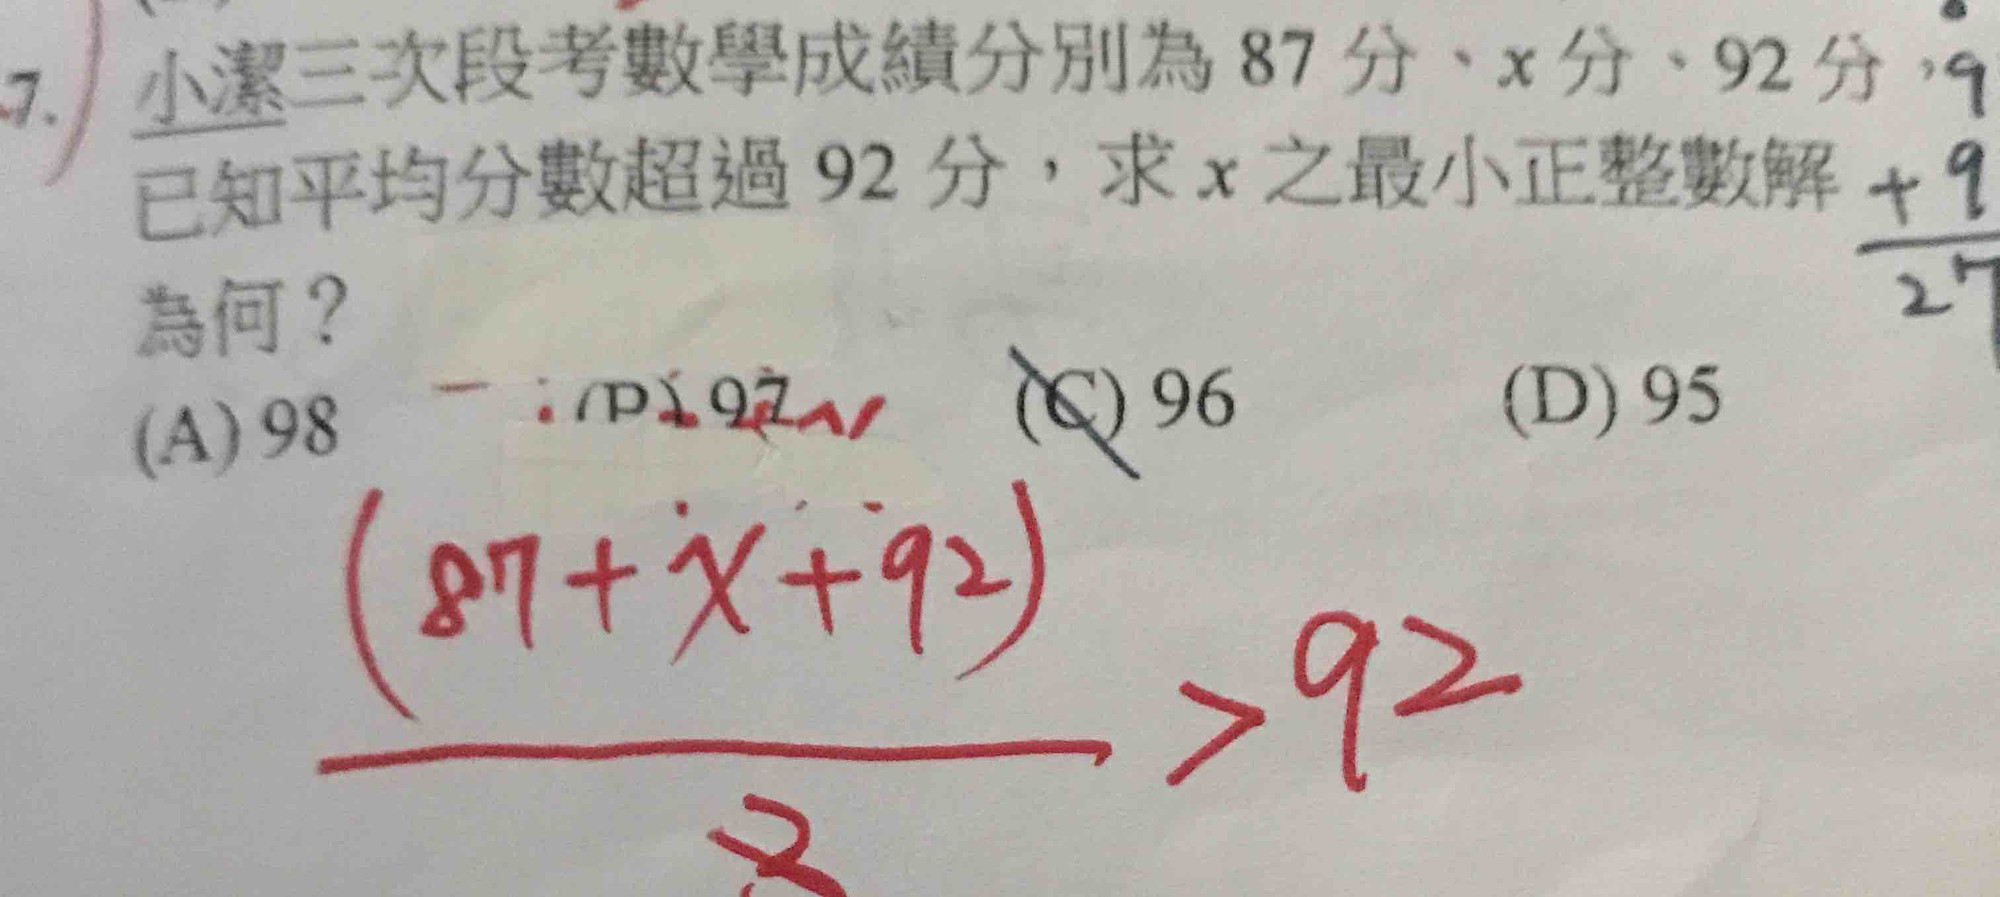 7. 小潔三次段考數學成績分別為 87 分、x 分、92 分，
已知平均分數超過 92 分，求 x 之最小正整數解
為何？
(A) 98 (B) 97 (C) 96 (D) 95
9
+ 9
27
(87+x+92)
> 92
3